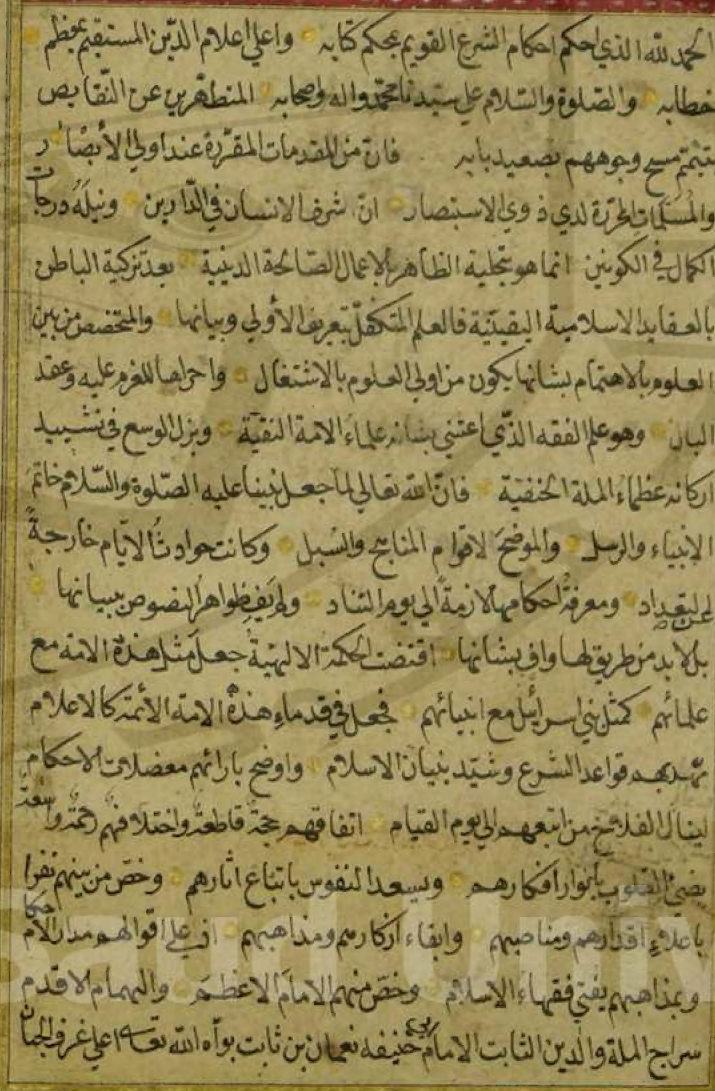 الحمد لله الذي احكم احكام الشرع القويم بمحكم كتابه واعلي اعلام الدّين المستقيم بمعظم
خطابه والصّلوة والسّلام علي سيّدنا محمّد واله واصحابه المتطهّرين عن النّقايص
بتيمّم مسح وجوههم بصعيد بابه فانّ من المقدمات المقرّرة عند اولي الأبصار
والمسلّمات المحرّرة لدي ذوي الاستبصار انّ شرف الانسان في الدّارين ونيله درجات
الكمال في الكونين انما هو بتحلية الظاهر بالاعمال الصّالحة الدينية بعد تزكية الباطن
بالعقايد الاسلامية اليقينيّة فالعلم المتكفّل بتعريف الأولي وبيانها والمتخصص من بين
العلوم بالاهتمام بشانها يكون من اولي العلوم بالاشتغال واحراها للعزم عليه وعقد
البال وهو علم الفقه الذّي اعتني بشانه علماء الامة النقيّة وبزل الوسع في تشييد
اركانه عظماء الملة الحنفيّة فانّ الله تعالي لما جعل نبينا عليه الصّلوة والسّلام خاتم
الانبياء والرسل والموضح لاقوام المناهج والسّبل وكانت حوادث الايّام خارجةً
عن التعداد ومعرفة احكامها لازمة الي يوم التناد ولم يف ظواهر النصوص ببيانها
بل لابد من طريق لها واف بشانها اقتضت الحكمة الالهيّة جعل مثل هذه الامة مع
علمائهم كمثل بني اسرائيل مع انبيائهم فجعل في قدماء هذه الامة الأئمّة كالاعلام
مهّد بهم قواعد الشرع وشيّد بنيان الاسلام واوضح بارائهم معضلات الاحكام
لينال الفلاح من اتبعهم الي يوم القيام اتفاقهم حجة قاطعة واختلافهم رحمة واسعة
يضئ القلوب بانوار افكارهم ويسعد النفوس باتباع اثارهم وخصّ من بينهم نفرا
باعلاء اقدارهم ومناصبهم وابقاء اذكارهم ومذاهبهم اذ علي اقوالهم مدار الاحكام
وبمذاهبهم يفتي فقهاء الاسلام وخصّ منهم الامام الاعظم والهمام الاقدم
سراج الملة والدين الثابت الامام ابو حنيفه نعمان بن ثابت بوّأه الله تعالي اعلي غرف الجنان